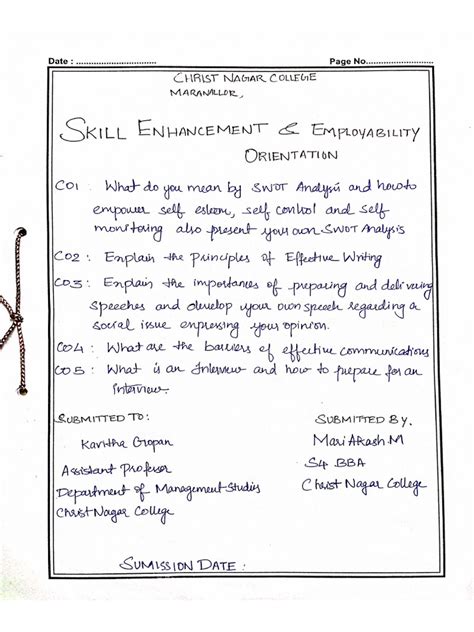 Date : ................................ Page No..........................
CHRIST NAGAR COLLEGE
MARANALLOR,
SKILL ENHANCEMENT & EMPLOYABILITY
ORIENTATION
CO1 : What do you mean by SWOT Analysis and how to
empower self esteem, self control and self
monitoring also present your own SWOT Analysis
CO2 : Explain the Principles of Effective Writing
CO3 : Explain the importances of preparing and delivering
speeches and develop your own speech regarding a
social issue expressing your opinion.
CO4 : What are the barriers of effective communications
CO5 : What is an Interview and how to prepare for an
Interview.
SUBMITTED TO:
Kavitha Gropan
Assistant Professor
Department of Management Studies
Christ Nagar College
SUBMITTED BY.
Mari Akash M
S4 BBA
Christ Nagar College
SUMISSION DATE :